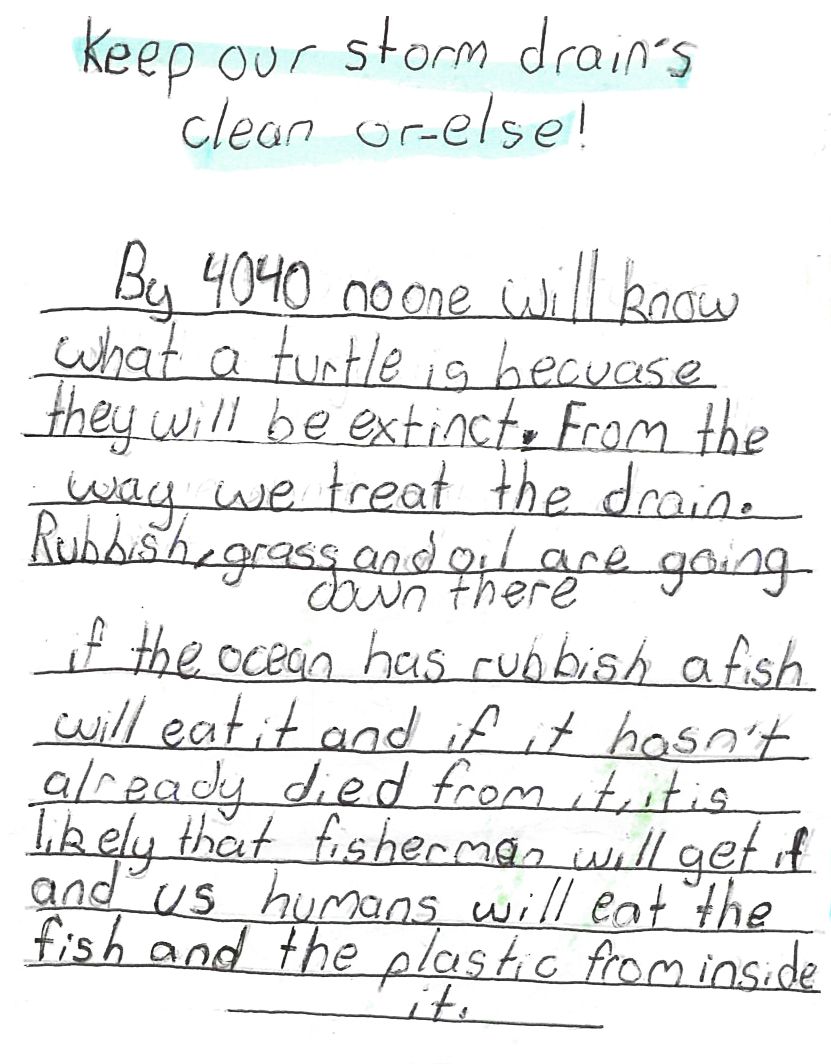 Keep our storm drain's
clean or-else!
By 4040 no one will know
what a turtle is becuase
they will be extinct. From the
way we treat the drain.
Rubbish, grass and oil are going
down there
if the ocean has rubbish a fish
will eat it and if it hasn't
already died from it, it is
likely that fisherman will get it
and us humans will eat the
fish and the plastic from inside
it.